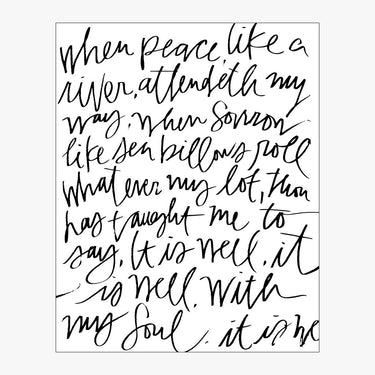 when peace, like a
river, attendeth my
way, when sorrow
like sea billows roll
whatever my lot, thou
has taught me to
say, It is well, it
is well, with
my soul. it is we